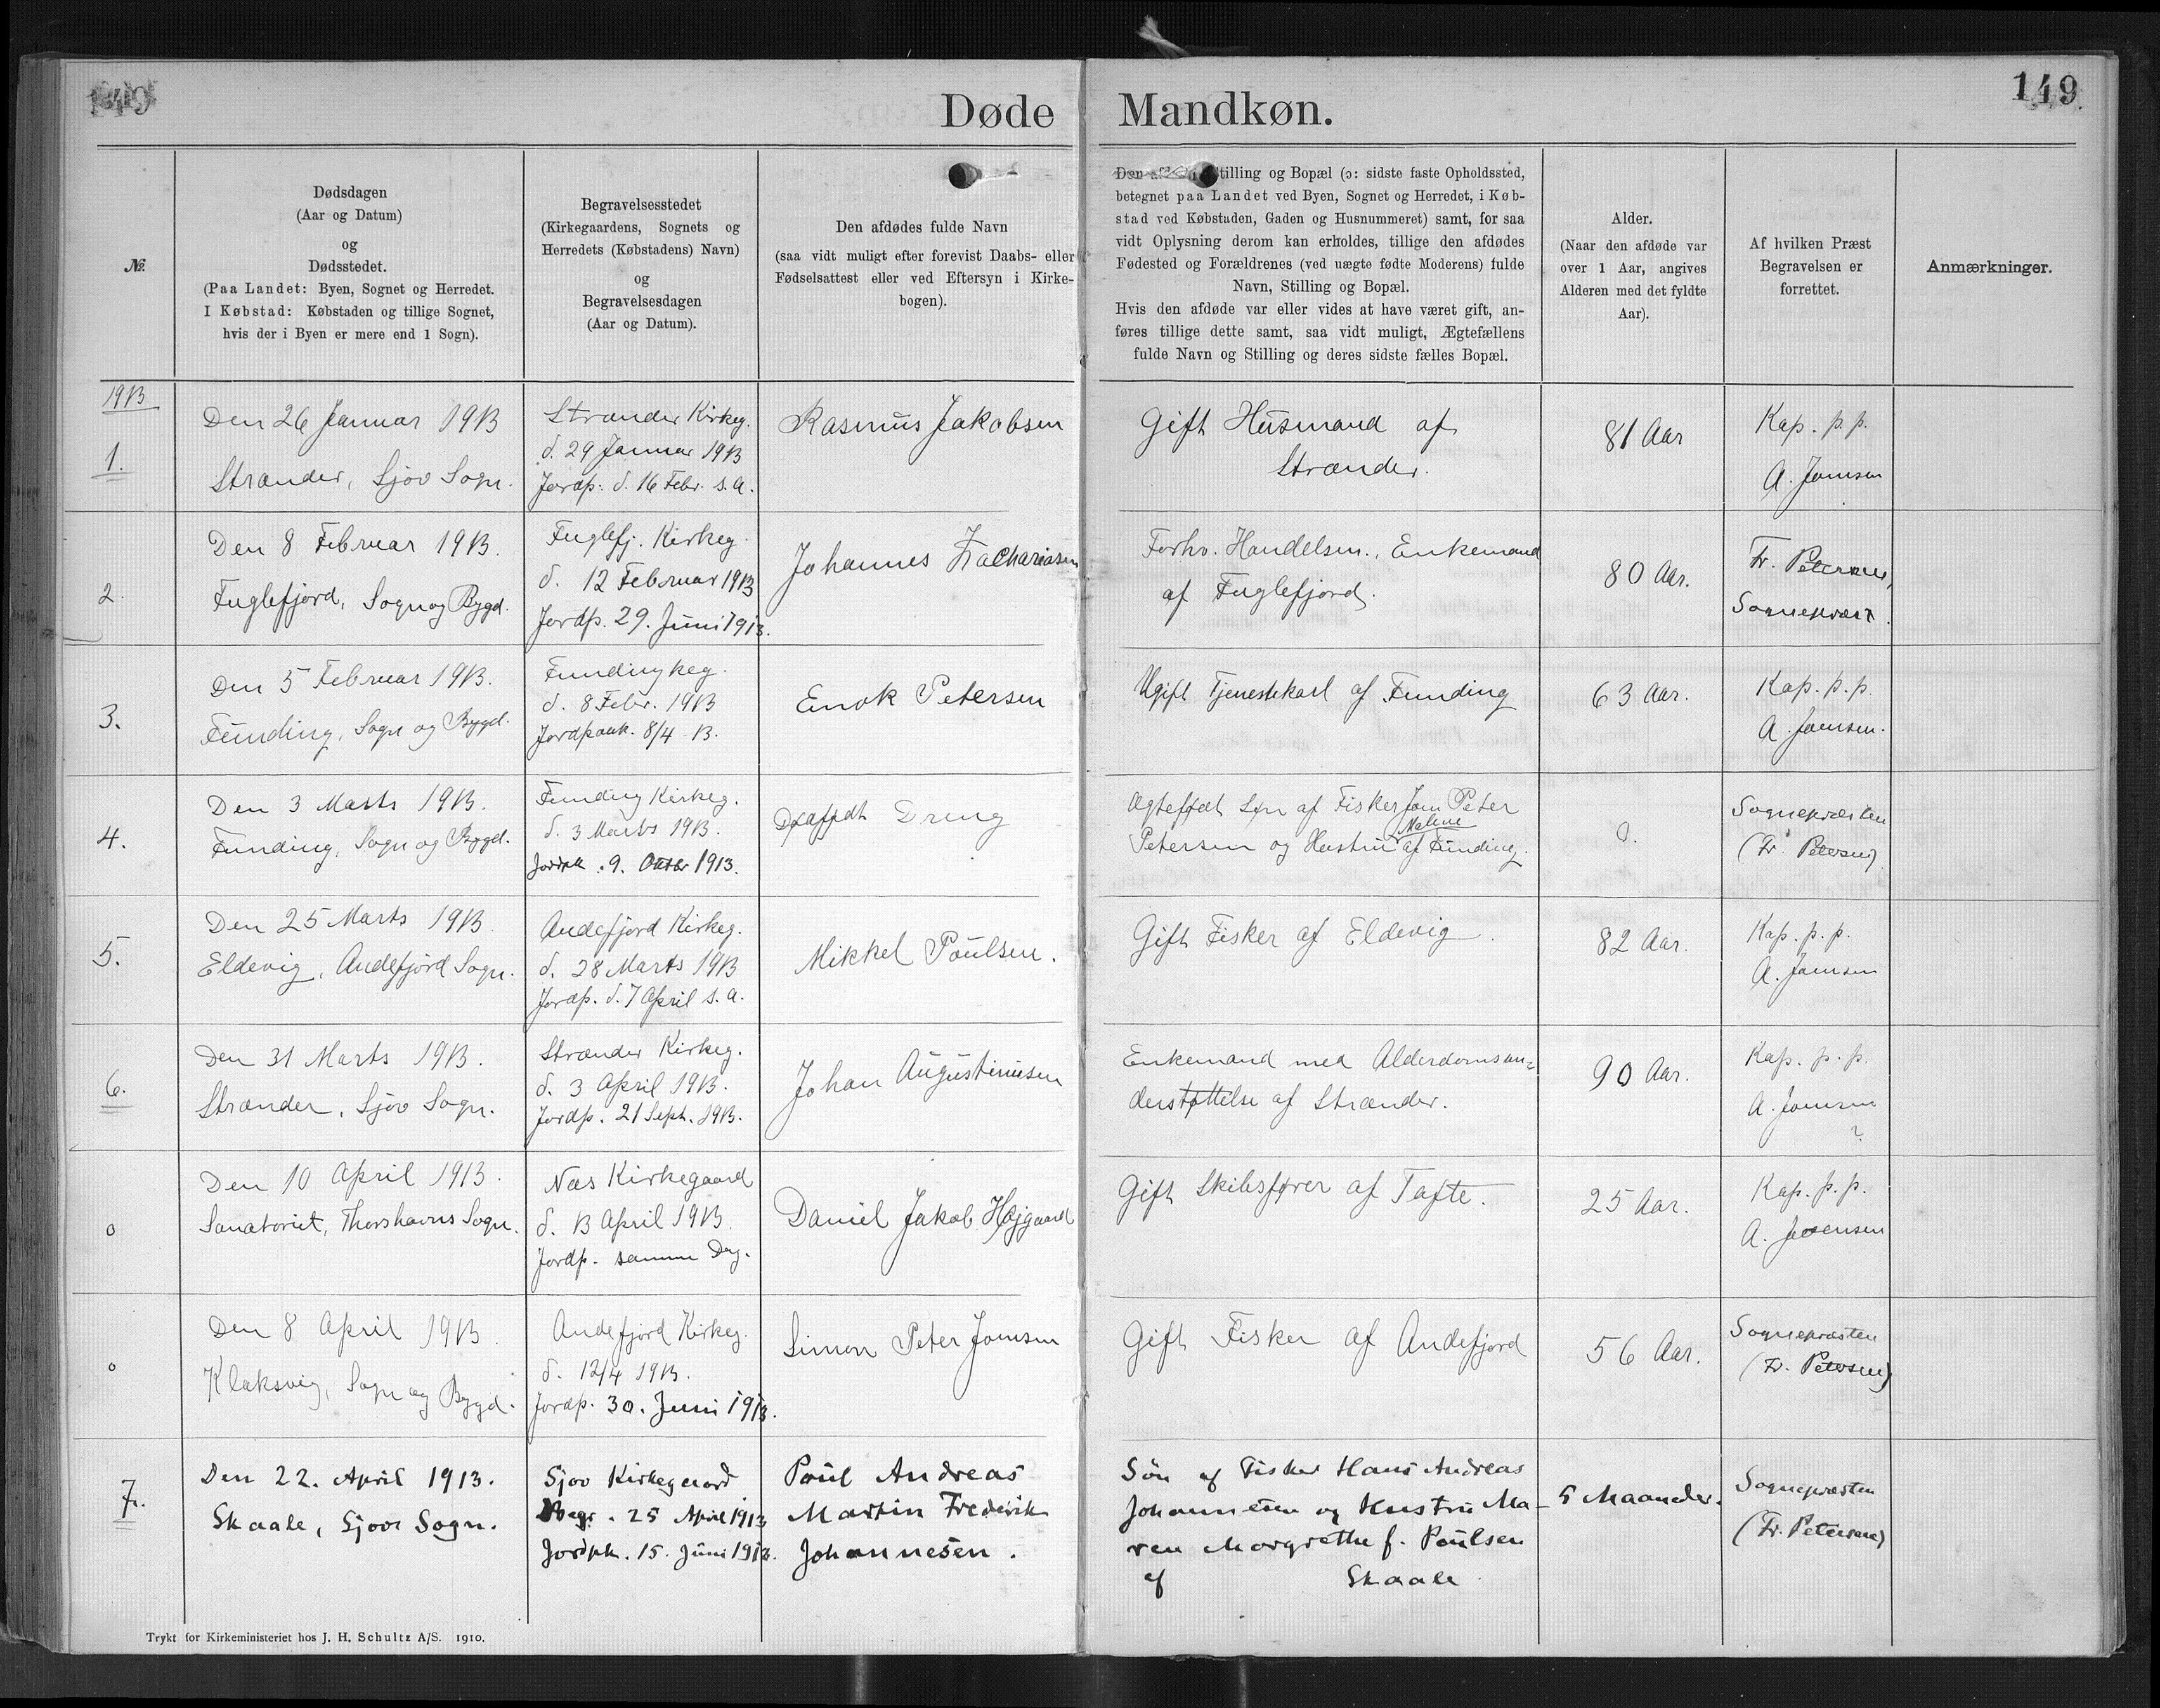 149
Døde Mandkøn.
149
№.
Dødsdagen
(Aar og Datum)
og
Dødsstedet.
(Paa Landet: Byen, Sognet og Herredet.
I Købstad: Købstaden og tillige Sognet,
hvis der i Byen er mere end 1 Sogn).
Begravelsesstedet
(Kirkegaardens, Sognets og
Herredets (Købstadens) Navn)
og
Begravelsesdagen
(Aar og Datum).
Den afdødes fulde Navn
(saa vidt muligt efter forevist Daabs- eller
Fødselsattest eller ved Eftersyn i Kirke-
bogen).
Stilling og Bopæl (ɔ: sidste faste Opholdssted,
betegnet paa Landet ved Byen, Sognet og Herredet, i Køb-
stad ved Købstaden, Gaden og Husnummeret) samt, for saa
vidt Oplysning derom kan erholdes, tillige den afdødes
Fødested og Forældrenes (ved uægte fødte Moderens) fulde
Navn, Stilling og Bopæl.
Hvis den afdøde var eller vides at have været gift, an-
føres tillige dette samt, saa vidt muligt, Ægtefællens
fulde Navn og Stilling og deres sidste fælles Bopæl.
Alder.
(Naar den afdøde var
over 1 Aar, angives
Alderen med det fyldte
Aar).
Af hvilken Præst
Begravelsen er
forrettet.
Anmærkninger.
1913
1.
Den 26 Januar 1913
Strænder, Sjov Sogn.
Strænder Kirkeg.
d. 29 Januar 1913
Jordp. d. 16 Febr. s. a.
Rasmus Jakobsen
Gift Husmand af
Strænder.
81 Aar
Kap. p. p.
A. Joensen
2.
Den 8 Februar 1913.
Fuglefjord, Sogn og Bygd.
Fuglefj. Kirkeg.
d. 12 Februar 1913
Jordp. 29. Juni 1913.
Johannes Zachariasen
Forhv. Handelsm., Enkemand
af Fuglefjord.
80 Aar.
Fr. Petersen,
Sognepræst.
3.
Den 5 Februar 1913.
Funding, Sogn og Bygd.
Funding keg.
d. 8 Febr. 1913
Jordpaak. 8/4 13.
Enok Petersen
Ugift Tjenestekarl af Funding
63 Aar.
Kap. p. p.
A. Joensen.
4.
Den 3 Marts 1913.
Funding, Sogn og Bygd.
Funding Kirkeg.
d. 3 Marts 1913.
Jordpk. 9. Oktbr 1913.
Dreng
Ægtefødt Søn af Fisker Joen Peter
Petersen og Hustru Malene af Funding.
0.
Sognepræsten
(Fr. Petersen)
5.
Den 25 Marts 1913.
Eldevig, Andefjord Sogn.
Andefjord Kirkeg.
d. 28 Marts 1913
Jordp. d. 7 April s. a.
Mikkel Poulsen.
Gift Fisker af Eldevig.
82 Aar.
Kap. p. p.
A. Joensen
6.
Den 31 Marts 1913.
Strænder, Sjov Sogn.
Strænder Kirkeg.
d. 3 April 1913.
Jordp. 21 Sept. 1913.
Johan Augustinusen
Enkemand med Alderdomsun=
derstøttelse af Strænder.
90 Aar.
Kap. p. p.
A. Joensen
?
0
Den 10 April 1913.
Sanatoriet, Thorshavns Sogn.
Næs Kirkegaard
d. 13 April 1913.
Jordp. samme Dag.
Daniel Jakob Højgaard
Gift Skibsfører af Tofte.
25 Aar.
Kap. p. p.
A. Joensen
0
Den 8 April 1913.
Klaksvig, Sogn og Bygd.
Andefjord Kirkeg.
d. 12/4 1913.
Jordp. 30. Juni 1913.
Simon Peter Joensen
Gift Fisker af Andefjord
56 Aar.
Sognepræsten
(Fr. Petersen)
7.
Den 22. April 1913.
Skaale, Sjov Sogn.
Sjov Kirkegaard
Begr. 25 April 1913
Jordpk. 15. Juni 1913.
Poul Andreas
Martin Frederik
Johannesen.
Søn af Fisker Hans Andreas
Johannesen og Hustru Ma-
ren Margrethe f. Poulsen
af Skaale
5 Maaneder.
Sognepræsten
(Fr. Petersen)
Trykt for Kirkeministeriet hos J. H. Schultz A/S. 1910.